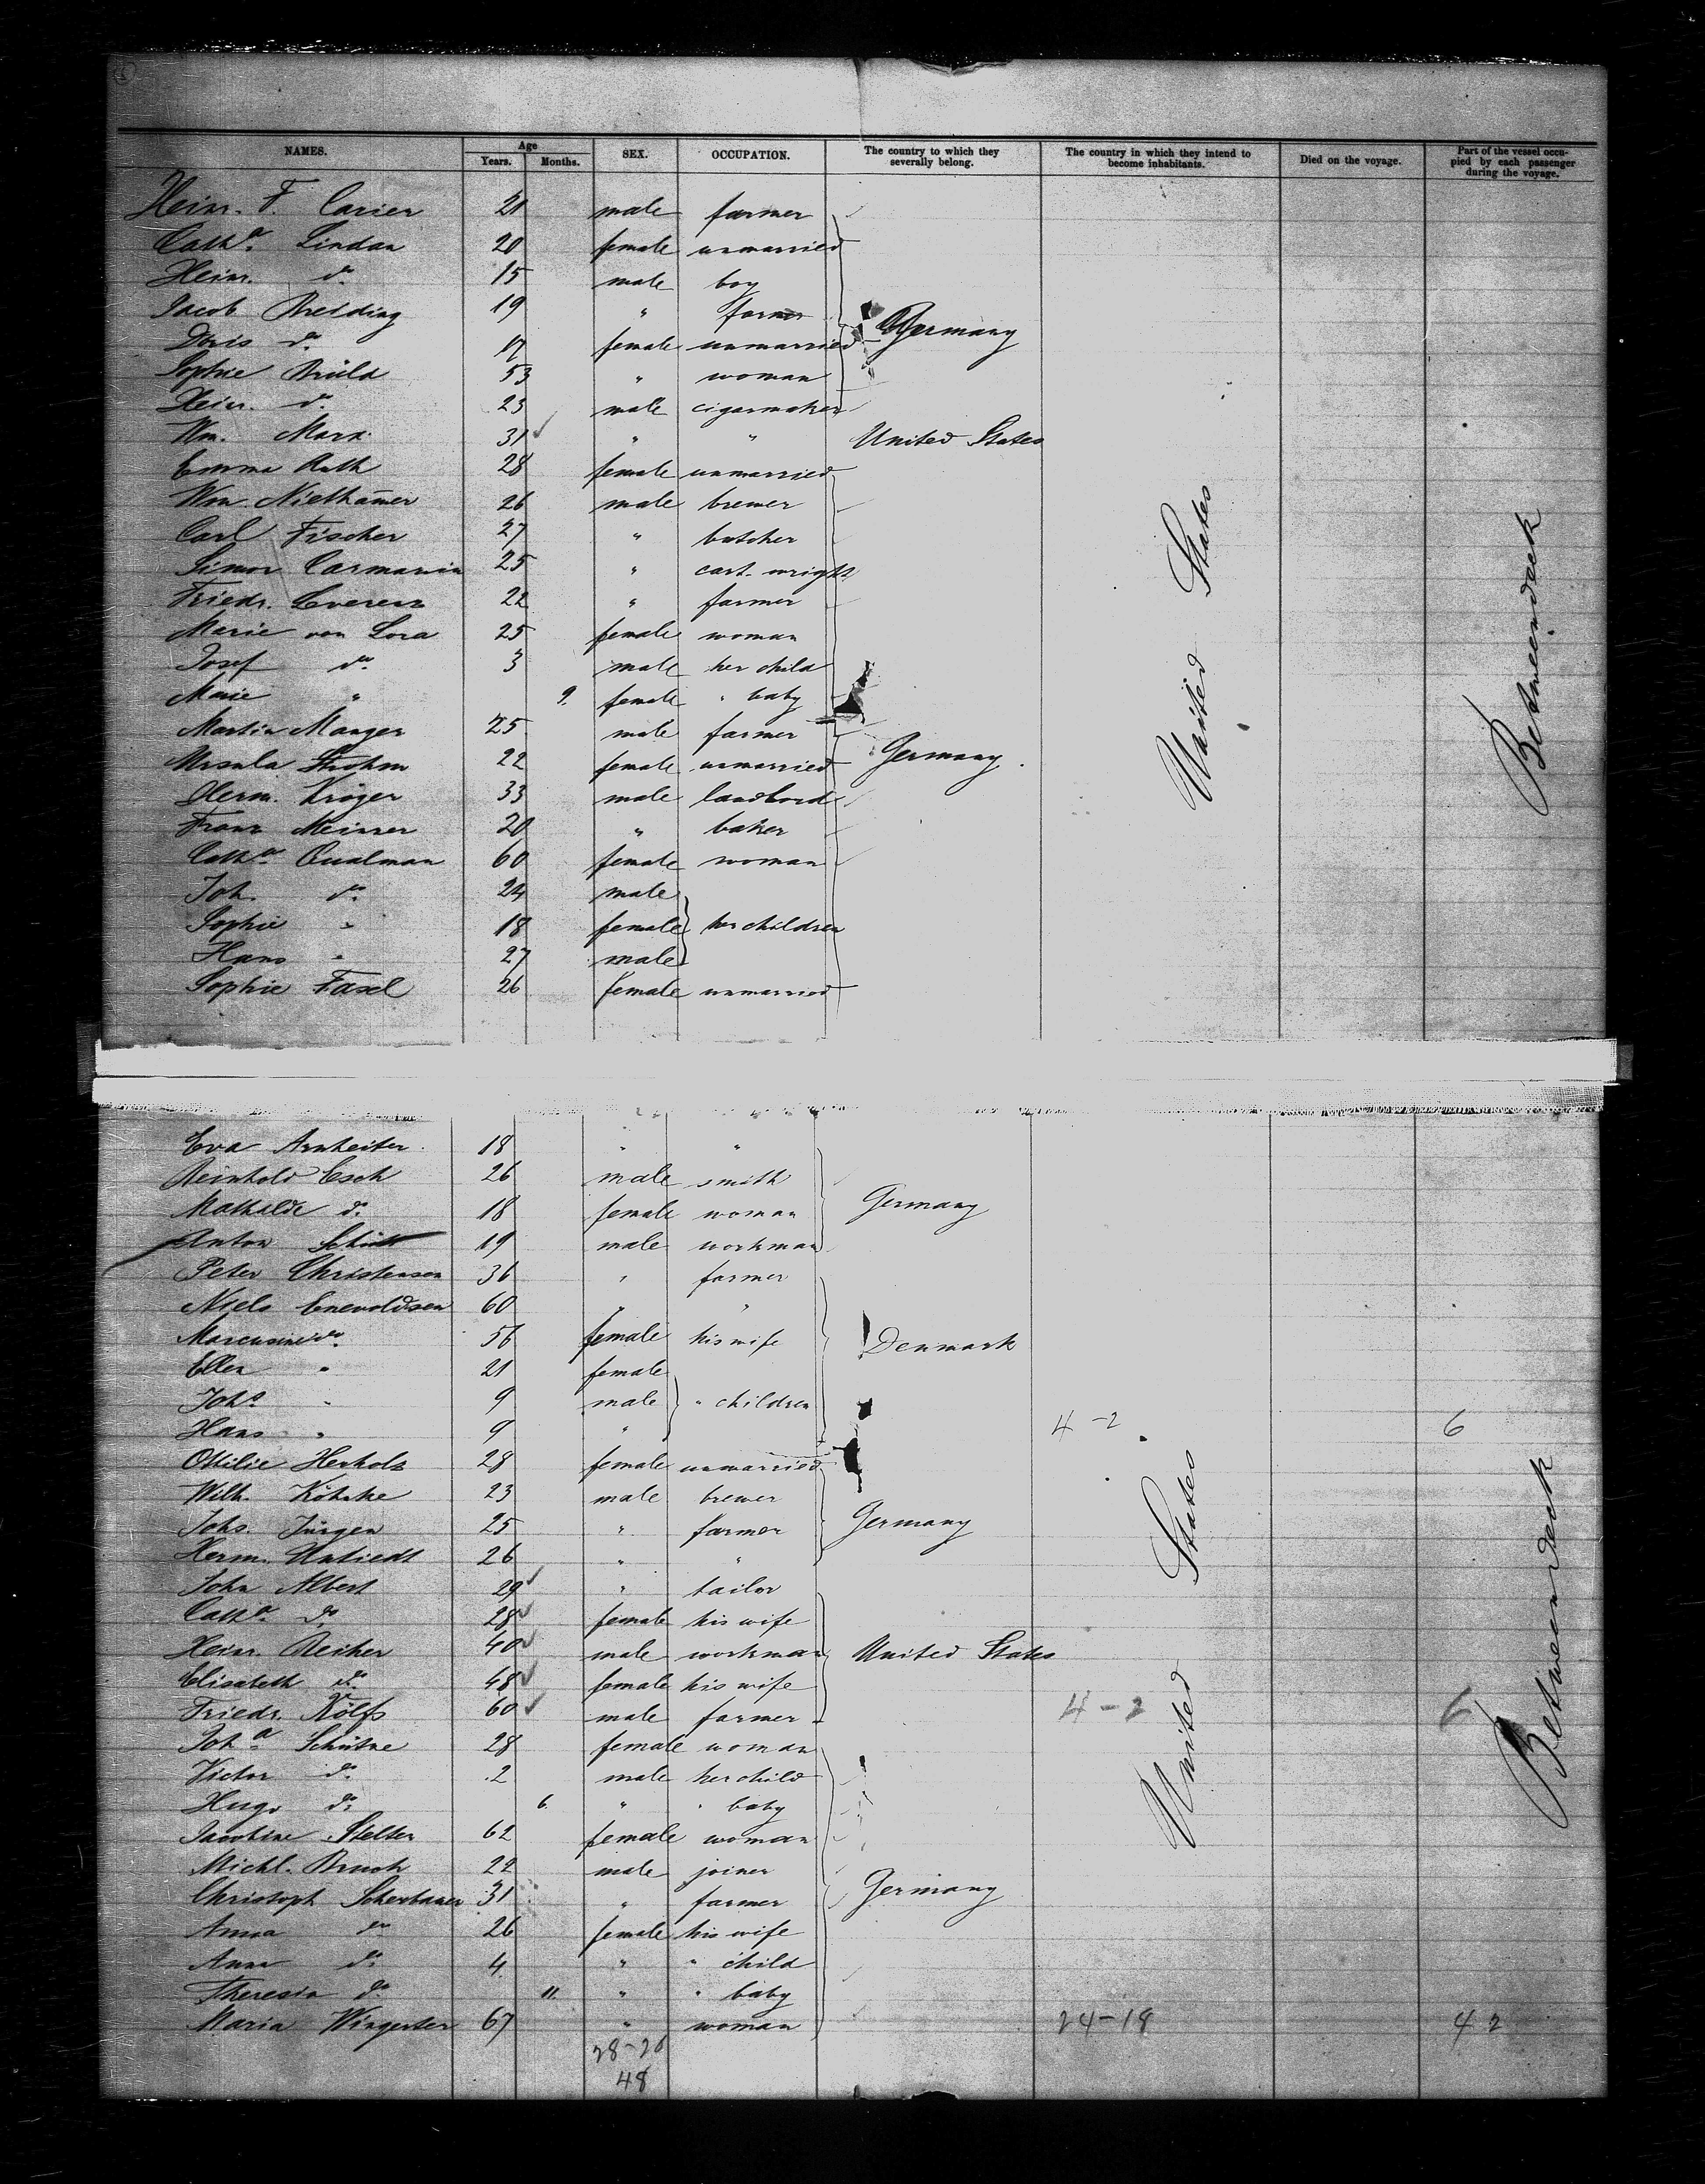 NAMES. Age Years. Months. SEX. OCCUPATION. The country to which they severally belong. The country in which they intend to become inhabitants. Died on the voyage. Part of the vessel occupied by each passenger during the voyage.
Heinr. F. Carier 21 male farmer
Catha. Lindau 20 female unmarried
Heinr. do. 15 male boy
Jacob Redding 19 " farmer
Doris do. 17 female unmarried Germany
Sophie Brüld 53 " woman
Heinr. do. 23 male cigarmaker
Wm. Marx 31 " " United States
Emma Rath 28 female unmarried
Wm. Niethamer 26 male brewer
Carl Fischer 27 " butcher
Simon 25 " cart-wright
Friedr. Evererz 22 " farmer
Marie von Lora 25 female woman
Josef do. 3 male her child
Marie " 9. female " baby
Martin Manger 25 male farmer
Ursula Strohm 22 female unmarried Germany
Herm. Kröger 33 male landlord
Franz Meixner 20 " baker
Catha. Qualman 60 female woman
Joh. do. 24 male
Sophie " 18 female her children
Hans " 27 male
Sophie Fasel 26 female unmarried
United States
Betweendeck
Eva Arnheiter 18 " "
Reinhold Esch 26 male smith
Mathilde do. 18 female woman Germany
Anton Schütt 19 male workman
Peter Christensen 36 " farmer
Niels Enevoldsen 60 " "
Marcusine do. 56 female his wife Denmark
Ellen " 21 female
Johs. " 9 male " children
Hans " 9 " 4-2 6
Ottilie Herholz 28 female unmarried
Wilh. Köhnke 23 male brewer
Johs. Jürgen 25 " farmer Germany
Herm. Untiedt 26 " "
John Albert 29 " tailor
Catha. do. 28 female his wife
Heinr. Reiher 40 male workman United States
Elisabeth do. 48 female his wife
Friedr. Kölfs 60 male farmer 4-2 6
Joha. Schütze 28 female woman
Victor do. 2 male her child
Hugo do. 6. " " baby
Jacobine Stelter 62 female woman
Michl. Bruch 22 male joiner
Christoph Scherbauer 31 " farmer Germany
Anna do. 26 female his wife
Anna do. 4. " " child
Theresia do. 11. " " baby
Maria Wingerter 67 " woman 24-18 42
28-20
48
United States
Betweendeck